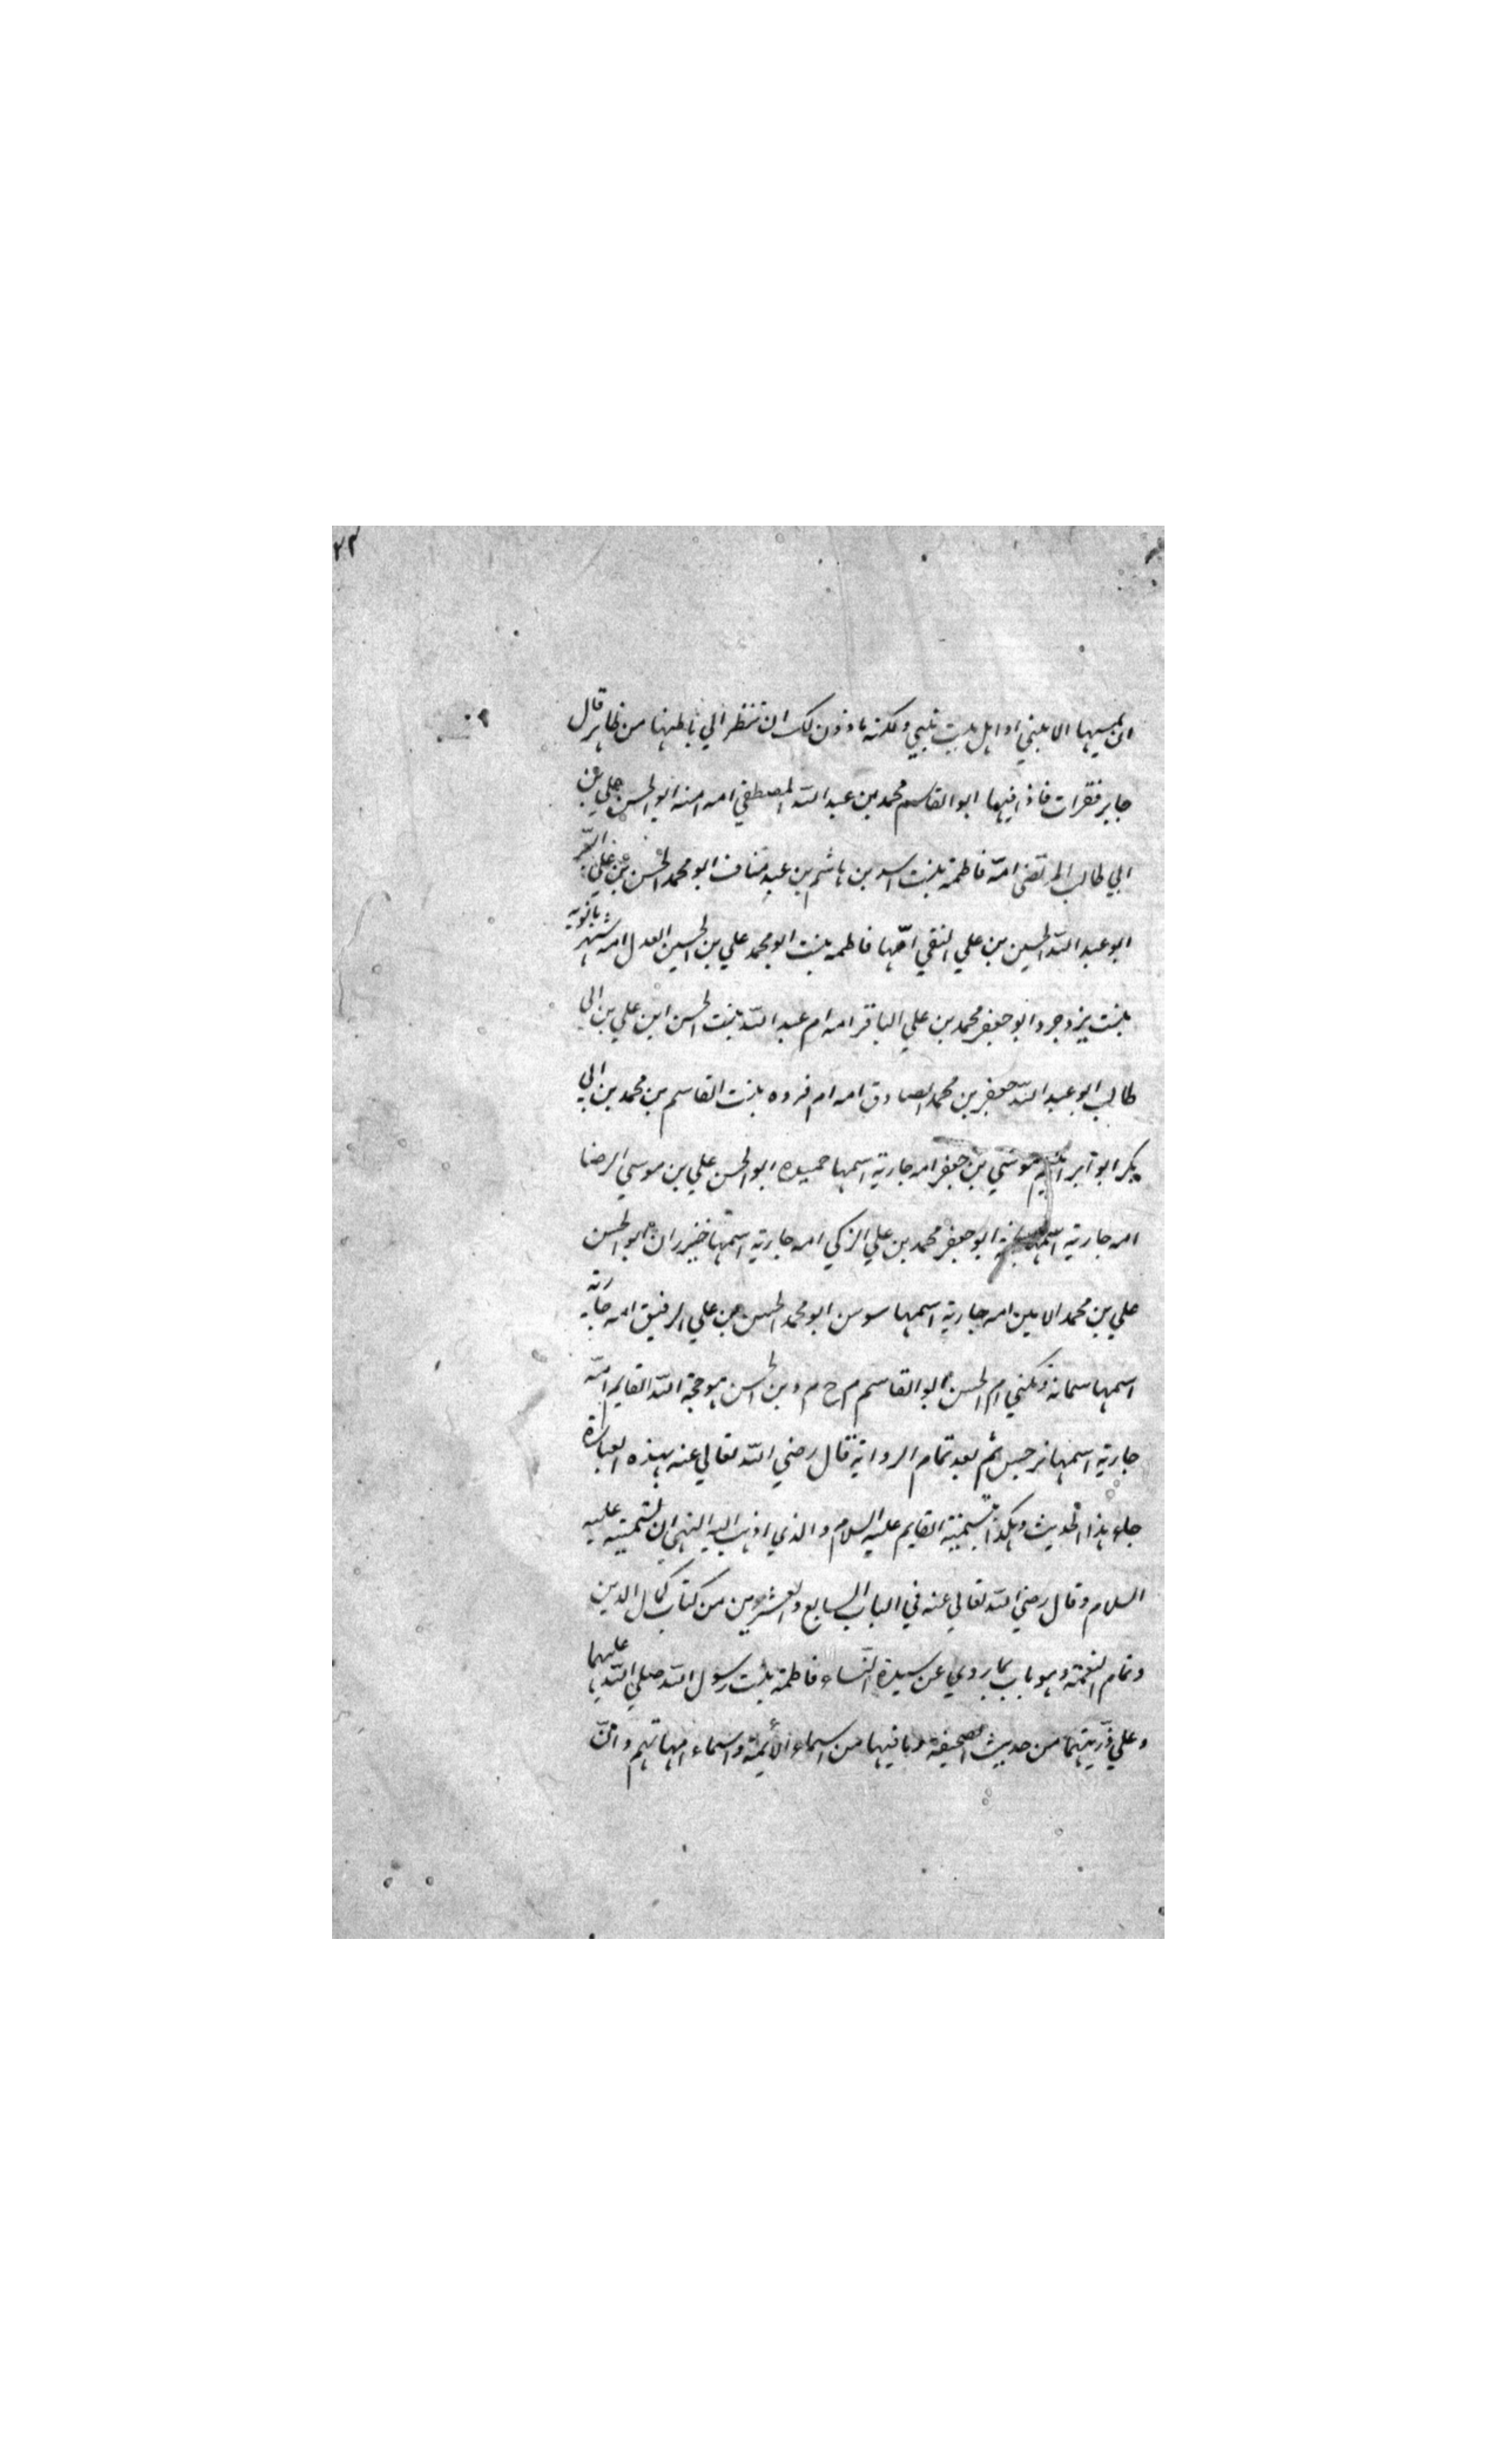 ٢٣
ان يمسها الا نبي او اهل بيت نبي ولكنه ماذون لك ان تنظر الي باطنها من ظاهر قال
جابر فقرات فاذا فيها ابو القاسم محمد بن عبد الله المصطفي امه امنه ابو الحسن علي بن
ابي طالب المرتضى امّه فاطمة بنت اسد بن هاشم بن عبد مناف ابو محمد الحسن بن علي البَرّ
ابو عبد الله الحسين بن علي التقي امّهما فاطمه بنت ابو محمد علي بن الحسين العدل امه شهر بانويه
بنت يزدجرد ابو جعفر محمد بن علي الباقر امه ام عبد الله بنت الحسن ابن علي بن ابي
طالب ابو عبد الله جعفر بن محمد الصادق امه ام فروه بنت القاسم بن محمد بن ابي
بكر ابو ابراهيم موسي بن جعفر امه جارية اسمها حميده ابو الحسن علي بن موسي الرضا
امه جارية اسمها نجمة ابو جعفر محمد بن علي الزكي امه جارية اسمها خيزران ابو الحسن
علي بن محمد الامين امه جارية اسمها سوسن ابو محمد الحسن بن علي الرفيق امه جارية
اسمها سمانة وتكني ام الحسن ابو القاسم م ح م د بن الحسن هو حجة الله القايم امّه
جارية اسمها نرجس ثم بعد تمام الرواية قال رضي الله تعالي عنه بهذه العبارة
جاء هذا الحديث وهكذا بتسمية القايم عليه السلام والذي اذهب اليه النهي ان تسميته عليه
السلام وقال رضي الله تعالي عنه في الباب السابع والعشرين من كتاب كمال الدين
وتمام النعمة وهو باب ما روي عن سيدة النّساء فاطمة بنت رسول الله صلي الله عليهما
وعلي ذرّيتهما من حديث الصحيفة وما فيها من اسماء الأئمة واسماء امهاتهم وانّ